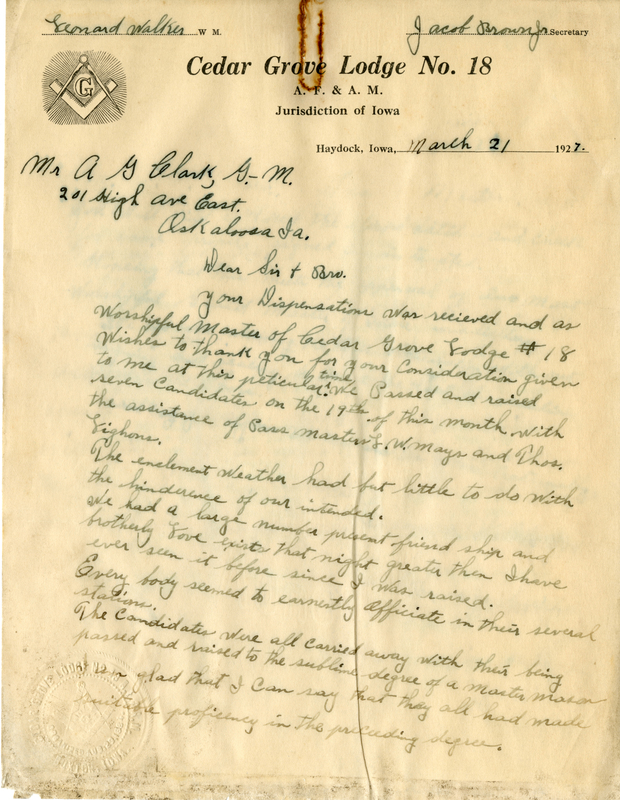 Leonard Walker W. M. Jacob Brown Jr. Secretary
G
Cedar Grove Lodge No. 18
A. F. & A. M.
Jurisdiction of Iowa
Haydock, Iowa, March 21 1927.
Mr A G Clark, G.-M.
201 High Ave East.
Oskaloosa Ia.
Dear Sir & Bro.
Your Dispensations was recieved and as
Worshipful Master of Cedar Grove Lodge # 18
Wishes to thank you for your Consideration given
to me at this peticular time. We Passed and raised
seven Candidates on the 19th of this month. With
the assistance of Pass masters S. W. Mays and Thos.
Lighons.
The enclement Weather had but little to do With
the hinderence of our intended.
We had a large number present friend ship and
brotherly Love exists that night greater then I have
ever seen it before since I was raised.
Every body seemed to earnestly Officiate in their several
stations.
The Candidates Were all carried away With their being
passed and raised to the sublime degree of a Master Mason
I am glad that I Can say that they all had made
suitable proficency in the preceding degree.